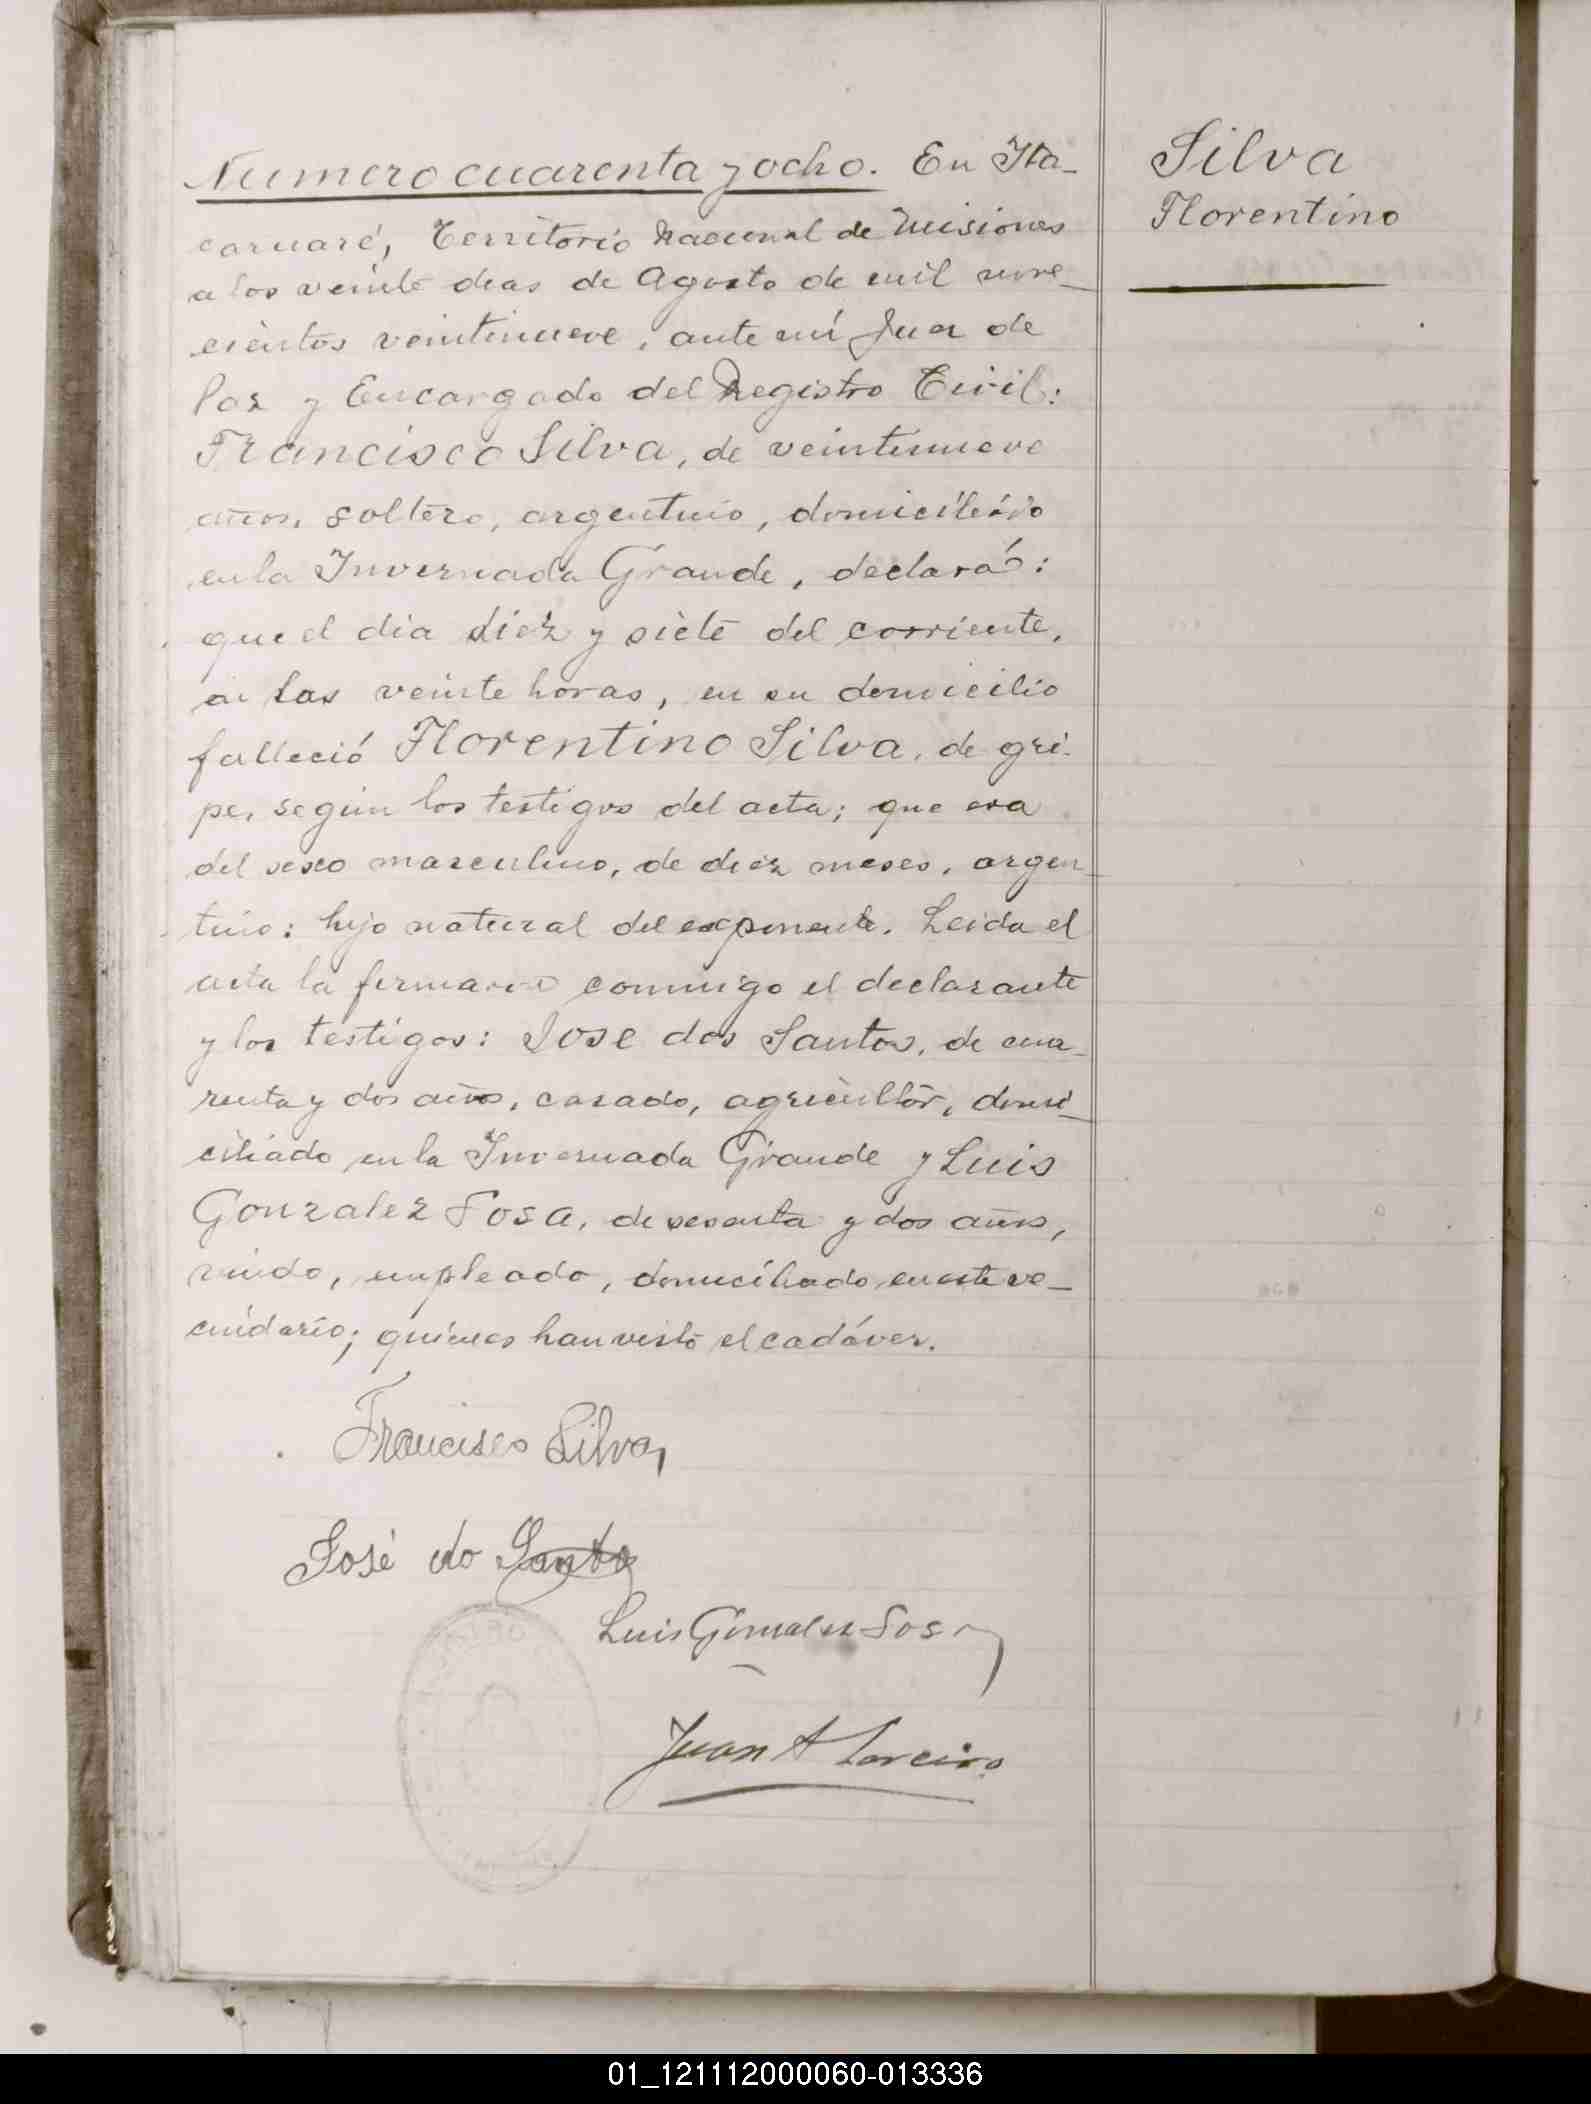 Numero cuarenta y ocho. En Ita-
caruaré, Territorio Nacional de Misiones
a los veinte dias de Agosto de mil nove-
cientos veintinueve, ante mí Juez de
Paz y Encargado del Registro Civil:
Francisco Silva, de veintinueve
años, soltero, argentino, domiciliado
en la Invernada Grande, declaró:
que el dia diez y siete del corriente,
a las veinte horas, en su domicilio
falleció Florentino Silva, de gri-
pe, según los testigos del acta; que era
del sexo masculino, de diez meses, argen-
tino: hijo natural del exponente. Leida el
acta la firmaron conmigo el declarante
y los testigos: Jose dos Santos, de cua-
renta y dos años, casado, agricultor, domi-
ciliado en la Invernada Grande y Luis
Gonzalez Sosa, de sesenta y dos años,
viudo, empleado, domiciliado en este ve-
cindario; quienes han visto el cadáver.
Francisco Silva
José do Santo
Luis Gonzalez Sosa
Juan A
Silva
Florentino
01_121112000060-013336